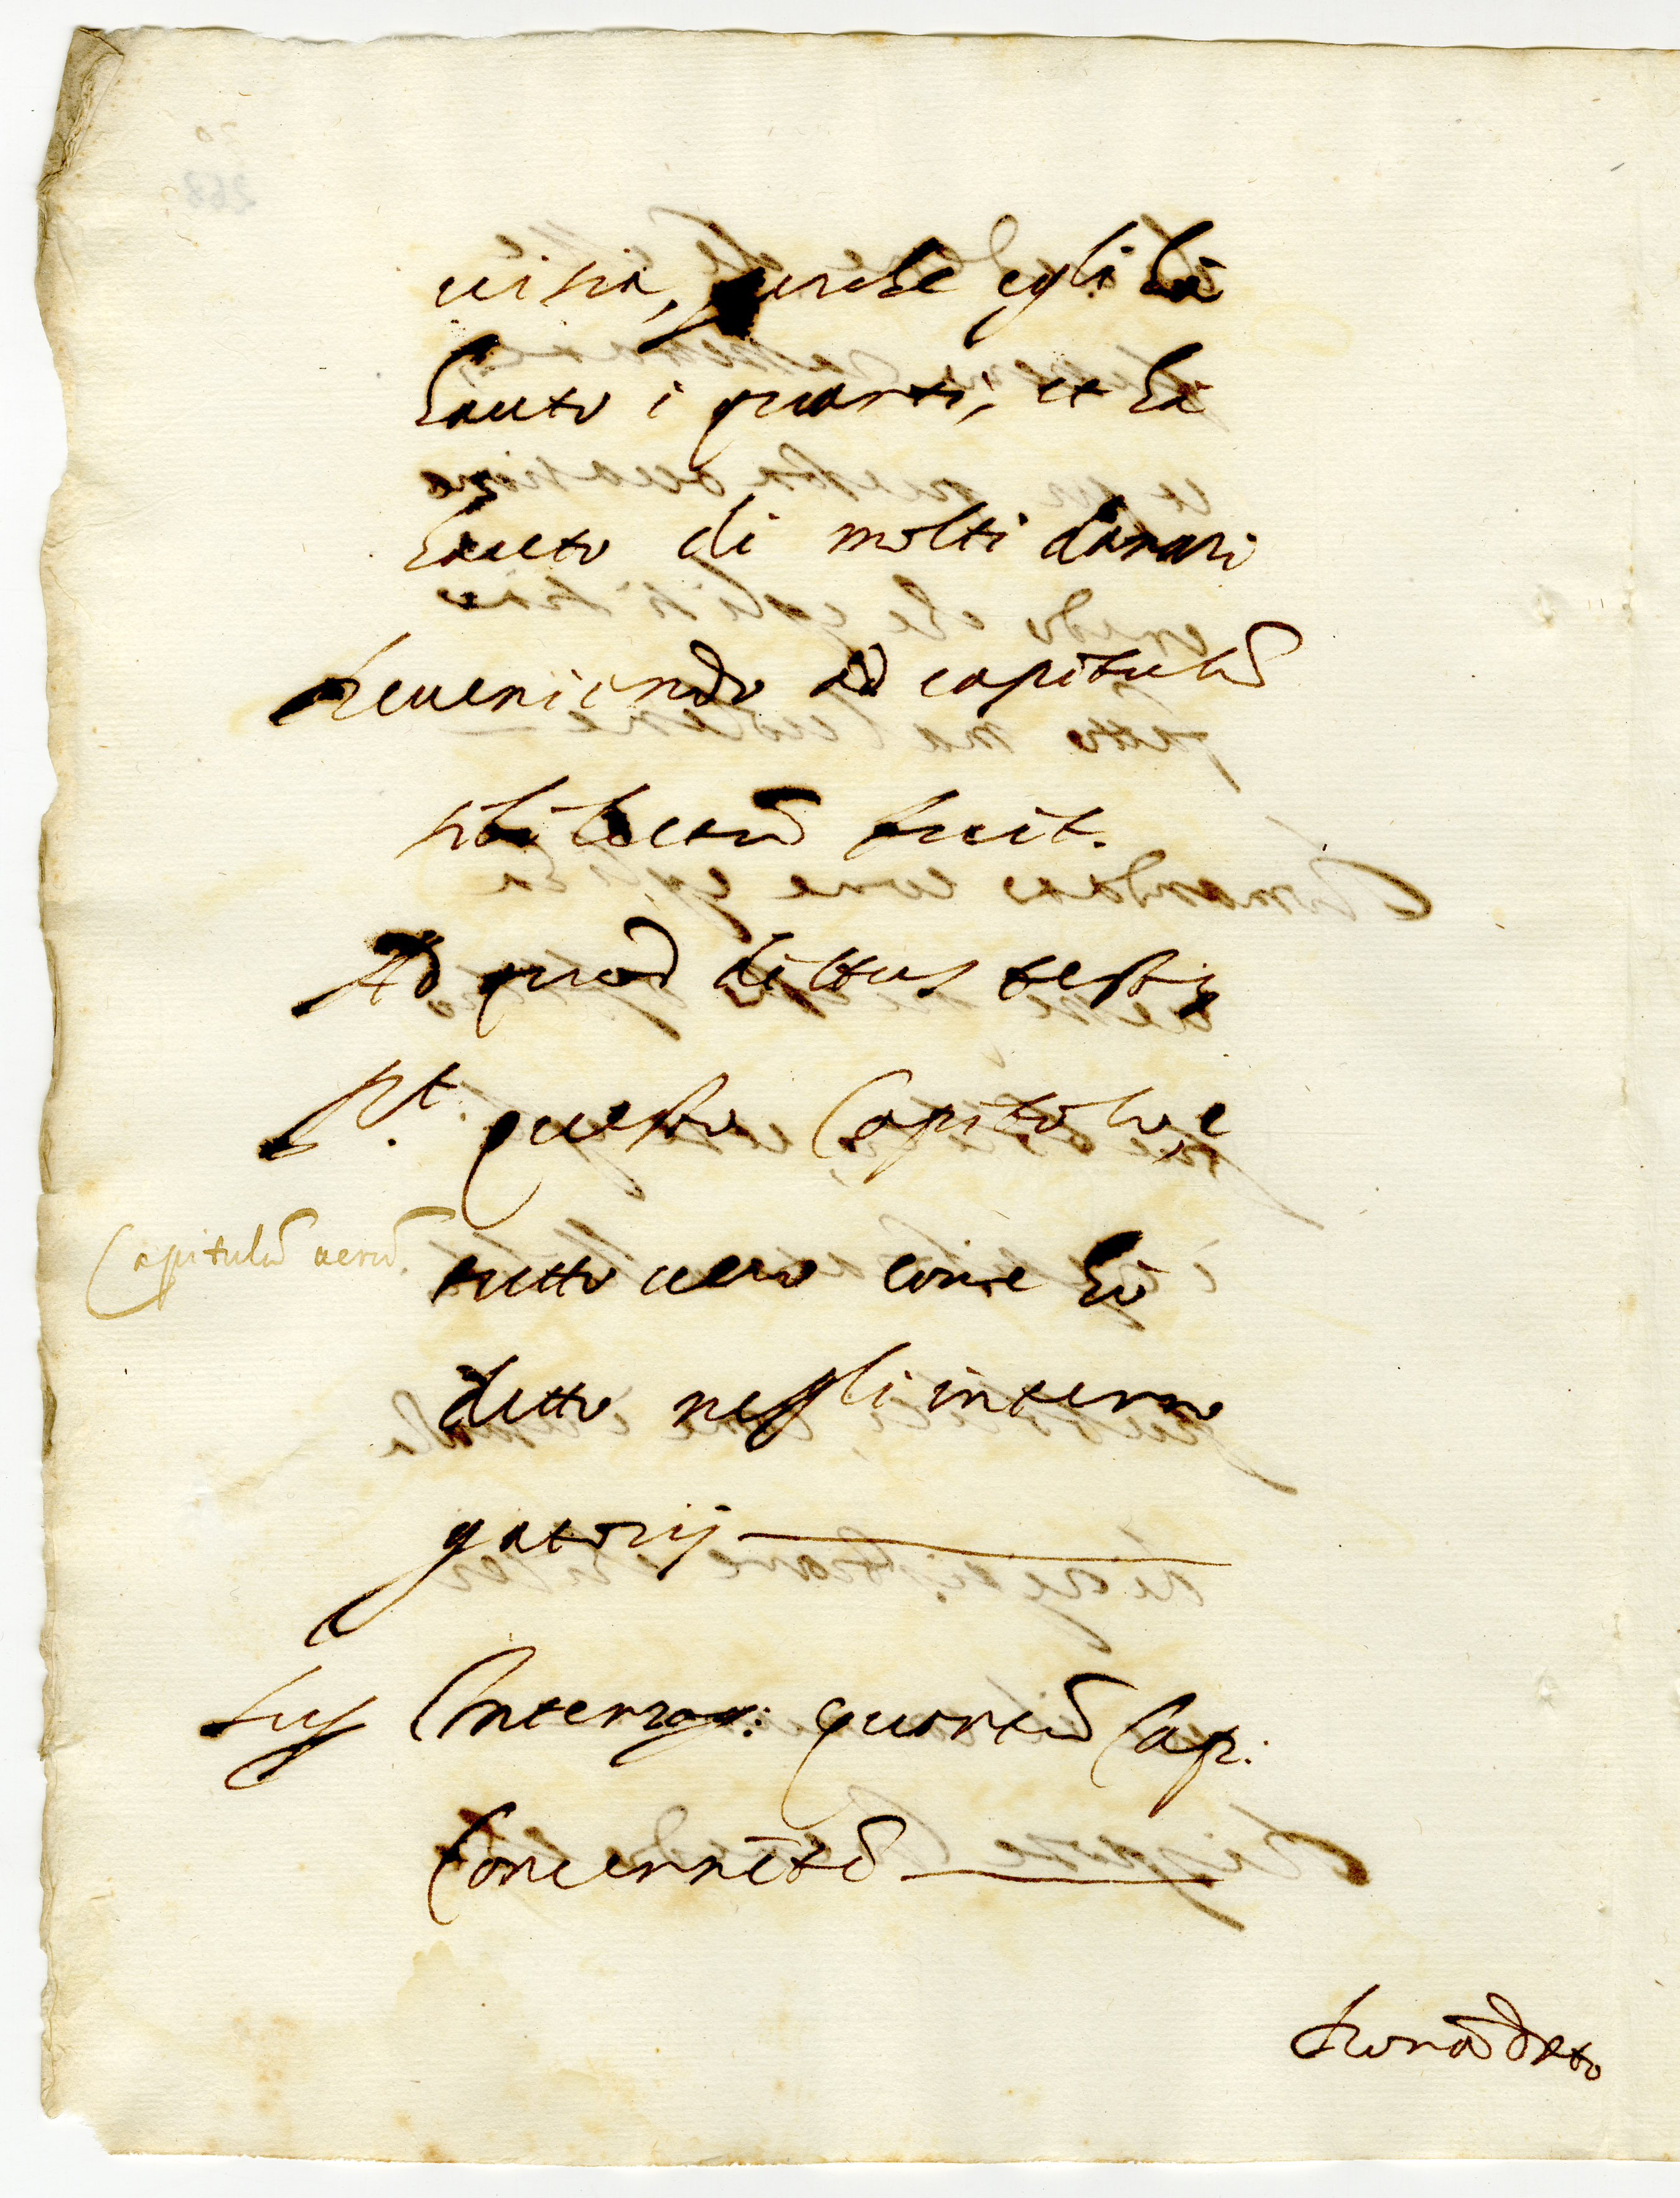 uitia, perche egli hà
hauto i quarti, et hà
hauto di molti danari
Deueniendo ad capitulũ
sibi lectũ fuit.
Ad quod dittus testis
Rt. questo Capitolo, è
Capitulũ uerũ.
tutto uero come hò
detto negli interro
gatorij
Sup Interrog: quartũ Cap:
Concernẽtẽ